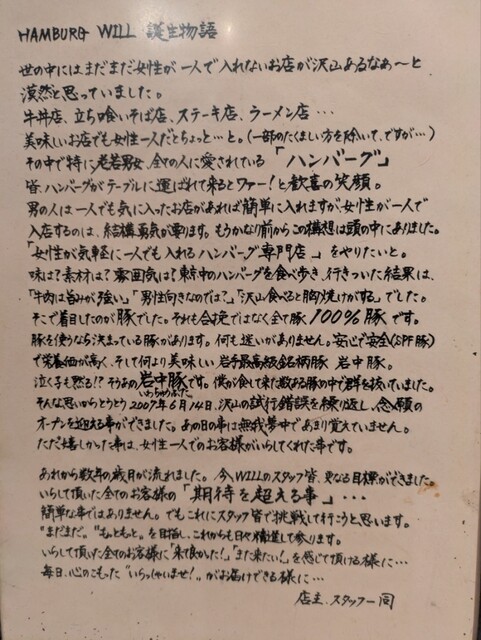 HAMBURG WILL 誕生物語
世の中にはまだまだ女性が一人で入れないお店が沢山あるなぁ〜と
漠然と思っていました。
牛丼店、立ち喰いそば店、ステーキ店、ラーメン店…
美味しいお店でも女性一人だとちょっと…と。(一部のたくましい方を除いて、ですが…)
その中で特に老若男女、全ての人に愛されている「ハンバーグ」
皆、ハンバーグがテーブルに運ばれて来るとワァー!と歓喜の笑顔。
男の人は一人でも気に入ったお店があれば簡単に入れますが、女性が一人で
入店するのは、結構勇気が要ります。もうかなり前からこの構想は頭の中にありました。
「女性が気軽に一人でも入れるハンバーグ専門店」をやりたいと。
味は?素材は?雰囲気は?東京中のハンバーグを食べ歩き、行きついた結果は、
「牛肉は旨みが強い」「男性向きなのでは?」「沢山食べると胸焼けがする」でした。
そこで着目したのが豚でした。それも合挽ではなく全て豚100%豚です。
豚を使うなら決まっている豚があります。何も迷いがありません。安心で安全(SPF豚)
で栄養価が高く、そして何より美味しい岩手最高級銘柄豚 岩中豚。
泣く子も黙る!?そうあの岩中豚です。僕が食して来た数ある豚の中で群を抜いていました。
いわちゅうぶた
そんな思いからとうとう2007年6月14日、沢山の試行錯誤を繰り返し、念願の
オープンを迎える事ができました。あの日の事は無我夢中であまり覚えていません。
ただ嬉しかった事は、女性一人でのお客様がいらしてくれた事です。
あれから数年の歳月が流れました。今、WILLのスタッフ皆、更なる目標ができました。
いらして頂いた全てのお客様の「期待を超える事」…
簡単な事ではありません。でもこれにスタッフ皆で挑戦して行こうと思います。
"まだまだ"。"もっともっと"。を目指し、これからも日々精進して参ります。
いらして頂いた全てのお客様に「来て良かった!」「また来たい!」を感じて頂ける様に…
毎日、心のこもった"いらっしゃいませ!"がお届けできる様に…
店主、スタッフ一同